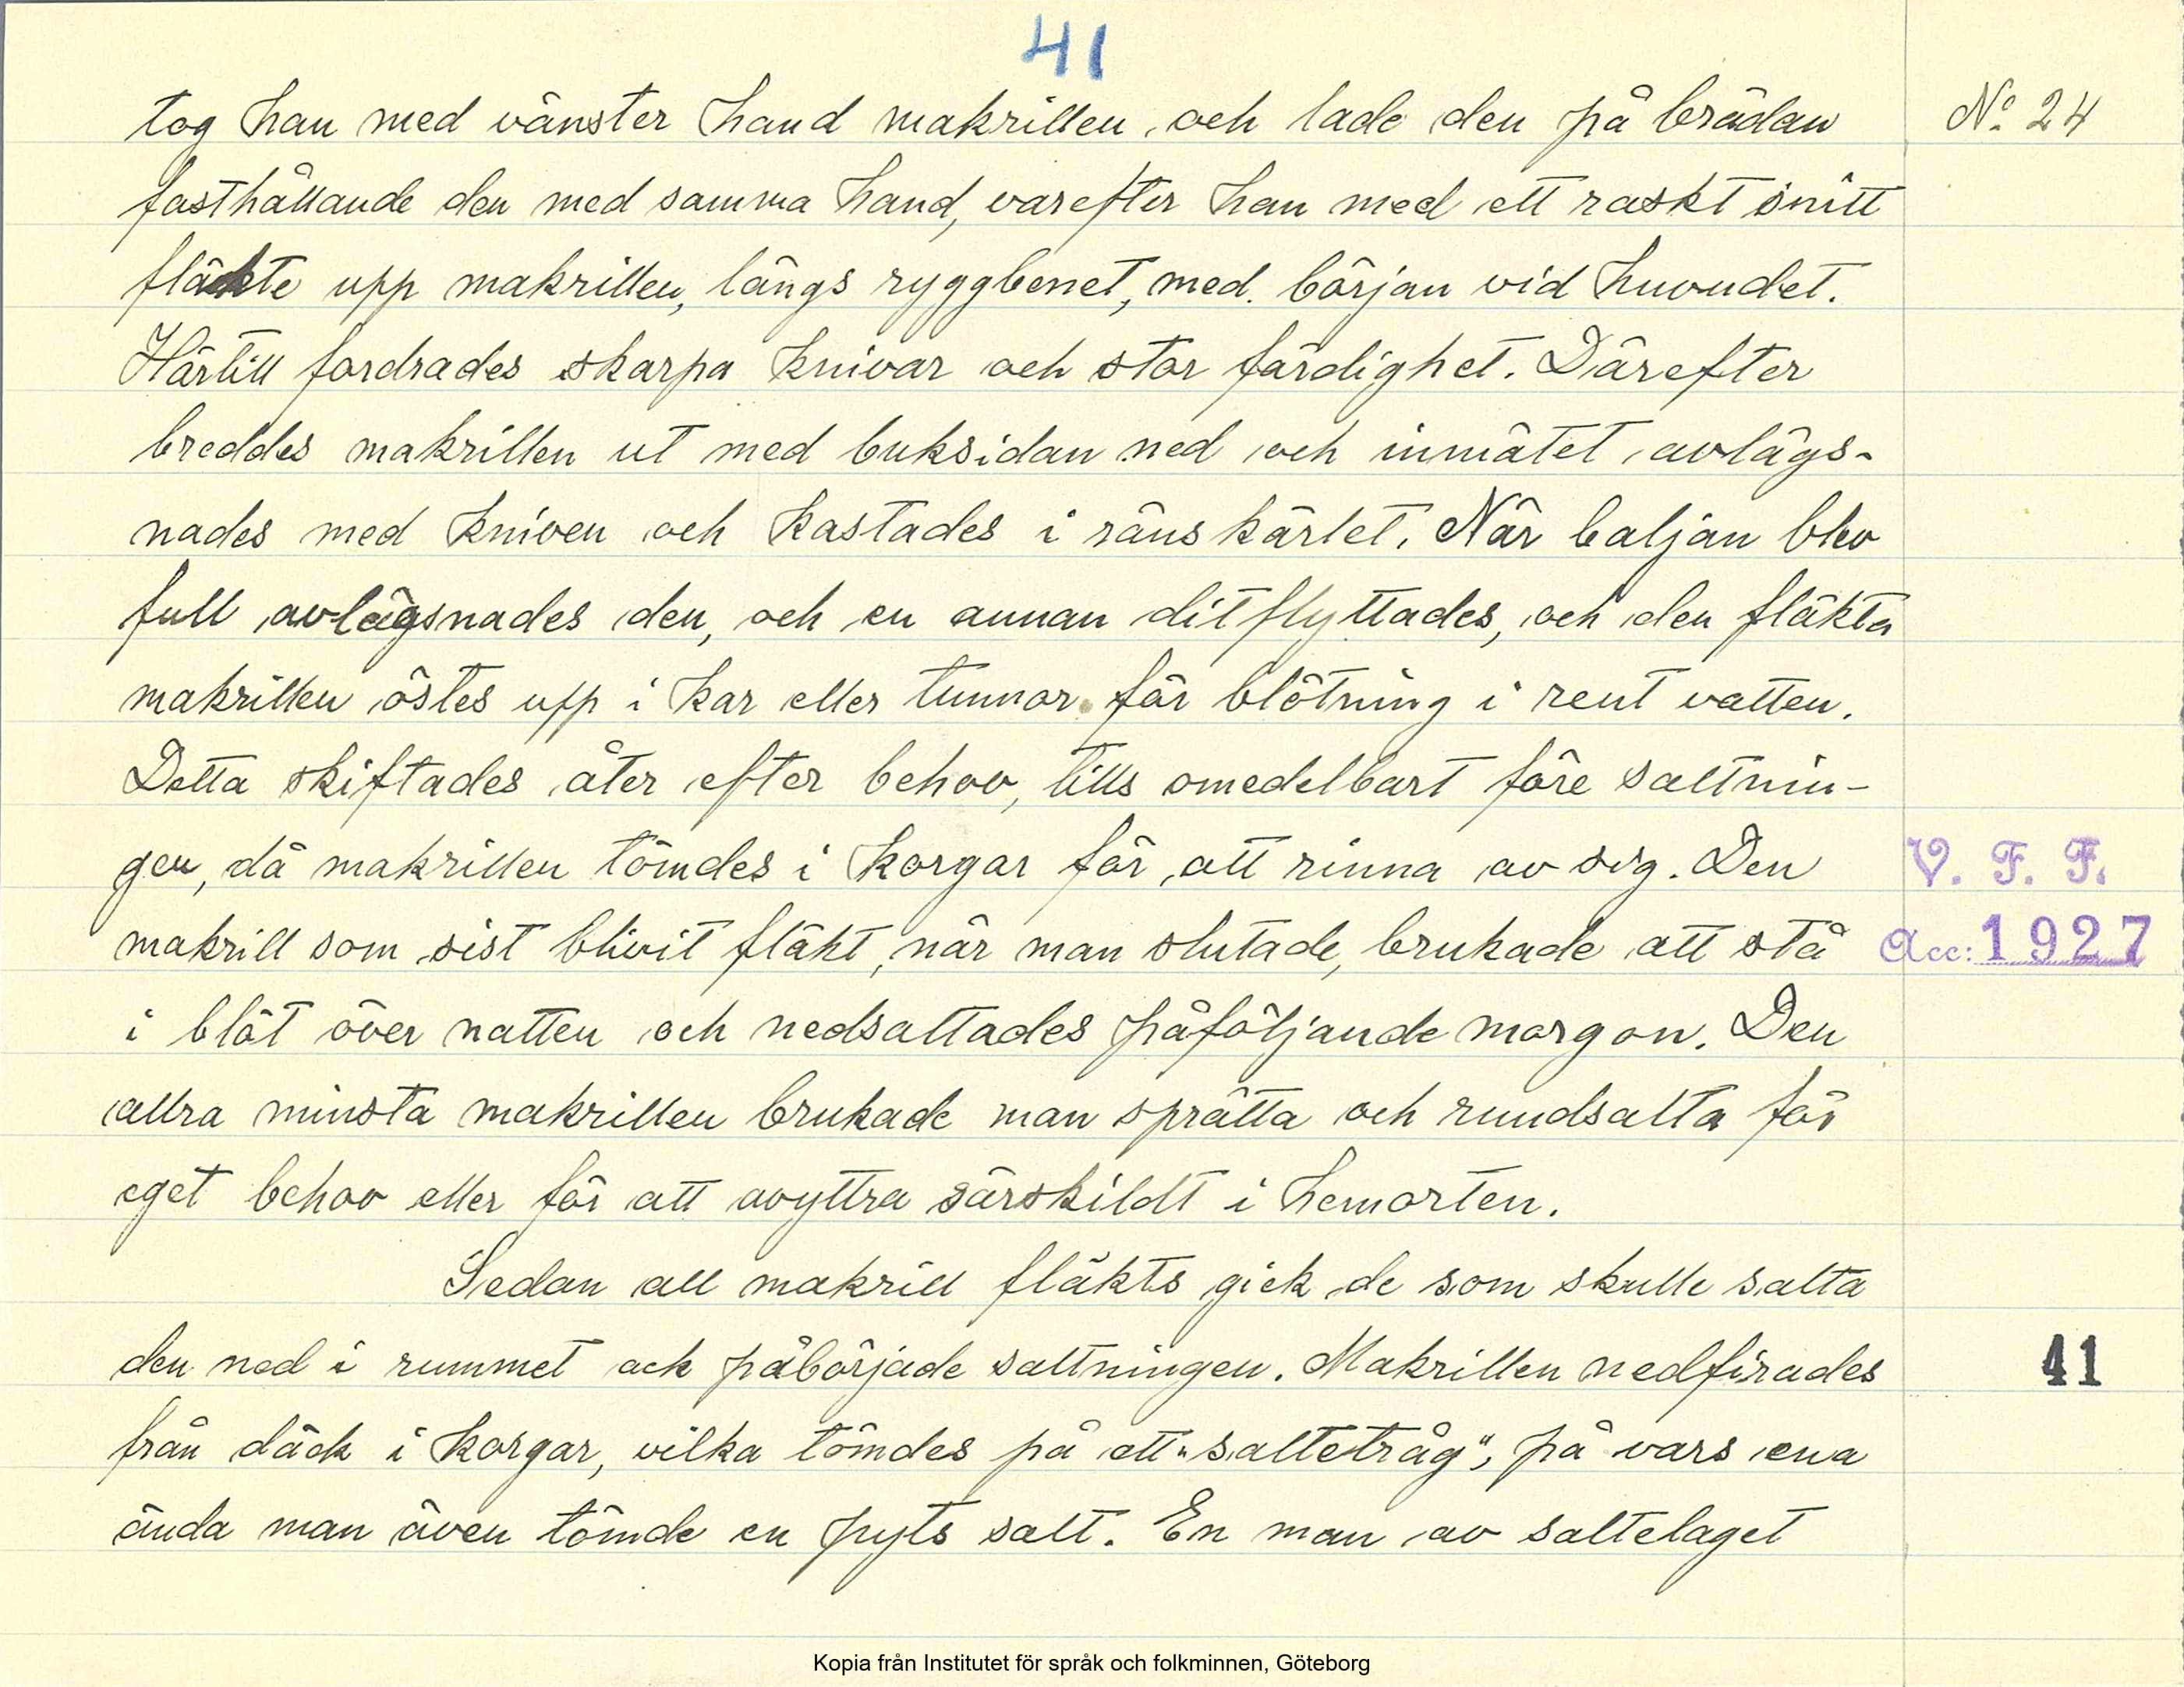 41
tog han med vänster hand makrillen och lade den på brädan
N:o 24
fasthållande den med samma hand, varefter han med ett raskt snitt
fläkte upp makrillen, längs ryggbenet, med början vid huvudet.
Härtill fordrades skarpa knivar och stor färdighet. Därefter
breddes makrillen ut med buksidan ned och inmätet avlägs-
nades med kniven och kastades i räns kärlet. När baljan blev
full avlägsnades den, och en annan ditflyttades, och den fläkta
makrillen östes upp i kar eller tunnor för blötning i rent vatten.
Detta skiftades åter efter behov, tills omedelbart före saltnin-
gen, då makrillen tömdes i korgar för att rinna av sig. Den
V. F. F.
makrill som sist blivit fläkt, när man slutade, brukade att stå
Acc: 1927
i blöt över natten och nedsaltades påföljande morgon. Den
allra minsta makrillen brukade man sprätta och rundsalta för
eget behov eller för att avyttra särskildt i hemorten.
Sedan all makrill fläkts gick de som skulle salta
den ned i rummet ock påbörjade saltningen. Makrillen nedfirades
41
från däck i korgar, vilka tömdes på ett "saltetråg", på vars ena
ända man även tömde en pyts salt. En man av saltelaget
Kopia från Institutet för språk och folkminnen, Göteborg